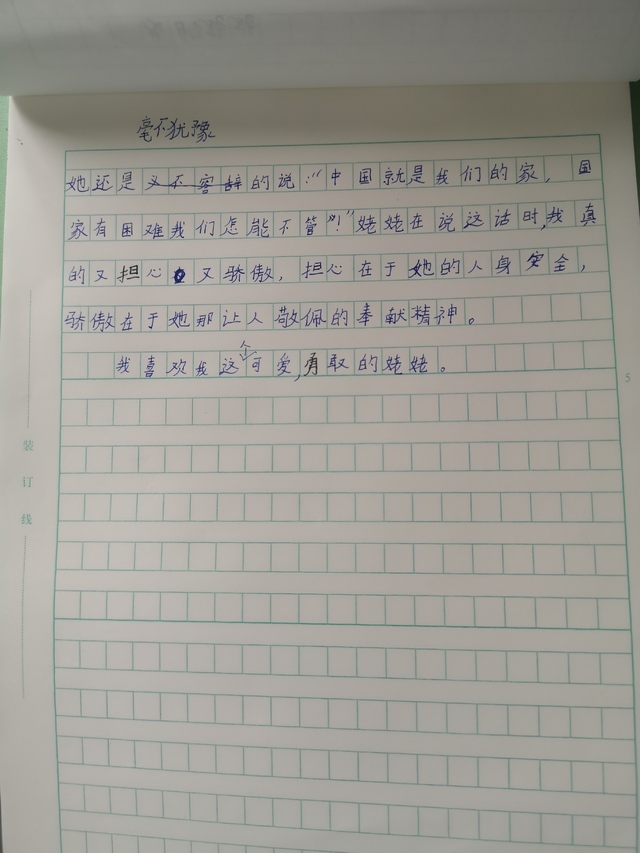 毫不犹豫
她还是义不容辞的说:“中国就是我们的家,国
家有困难我们怎能不管”!”姥姥在说这话时,我真
的又担心又骄傲,担心在于她的人身安全,
骄傲在于她那让人敬佩的奉献精神。
我喜欢我这个可爱,勇敢的姥姥。
装
订
线
5